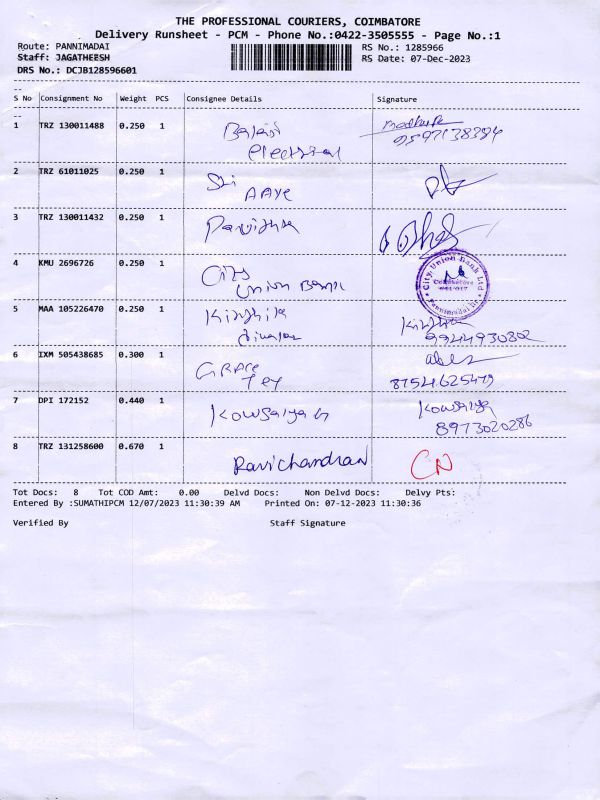 THE PROFESSIONAL COURIERS, COIMBATORE
Delivery Runsheet - PCM - Phone No.:0422-3505555 - Page No.:1
Route: PANNIMADAI
RS No.: 1285966
Staff: JAGATHEESH
RS Date: 07-Dec-2023
DRS No.: DCJB128596601
S No Consignment No Weight PCS Consignee Details Signature
1 TRZ 130011488 0.250 1 Balaji
electrical
9597138384
2 TRZ 61011025 0.250 1 Sri
3 TRZ 130011432 0.250 1 Pavithra
4 KMU 2696726 0.250 1 City
Union Bank
City Union Bank Ltd
Coimbatore
641 017
Pannimadai Br
5 MAA 105226470 0.250 1
9944930802
6 IXM 505438685 0.300 1 Grace
Tex
8754625479
7 DPI 172152 0.440 1 Kowsalya Kowsalya
8973020286
8 TRZ 131258600 0.670 1 Ravichandran CN
Tot Docs: 8 Tot COD Amt: 0.00 Delvd Docs: Non Delvd Docs: Delvy Pts:
Entered By :SUMATHIPCM 12/07/2023 11:30:39 AM Printed On: 07-12-2023 11:30:36
Verified By Staff Signature